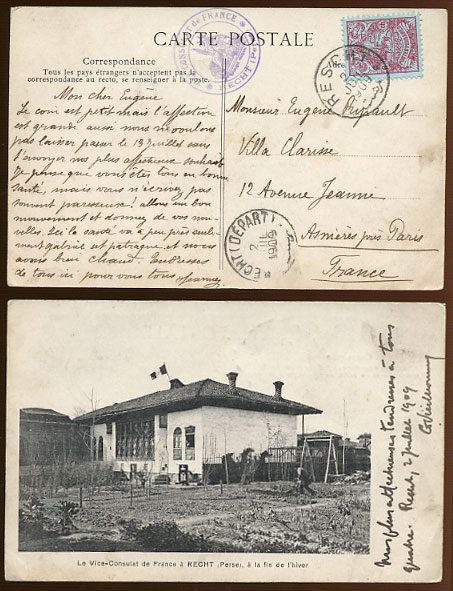 CARTE POSTALE
Correspondance
Tous les pays étrangers n'acceptent pas la
correspondance au recto, se renseigner à la poste.
Mon cher Eugène
Le coin est petit mais l'affection
est grande aussi nous ne voulons
pas laisser passer le 13 Juillet sans
t'envoyer nos plus affectueux souhaits
Je pense que vous êtes tous en bonne
santé, mais vous n'écrivez pas
souvent paresseux! allons un bon
mouvement et donnez de vos nou-
velles. Ici la santé va à peu près
et nous
avons bien chaud. Tendresses
de tous ici pour vous tous
Monsieur Eugène Ripault
Villa Clarisse
12 Avenue Jeanne
Asnières près Paris
France
VICE-CONSULAT de FRANCE
RECHT (Perse)
RESCHT
RECHT (DÉPART)
2
JUL
1909
Le Vice-Consulat de France à RECHT (Perse), à la fin de l'hiver
Nos plus affectueuses tendresses à tous
Recht, 2 Juillet 1909